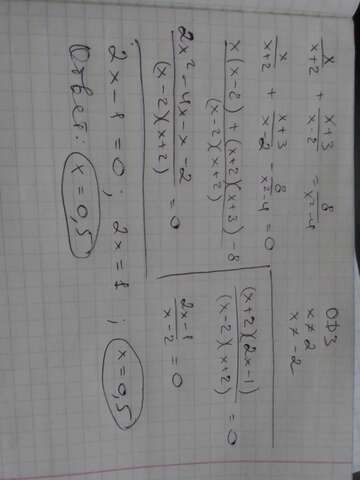 x/(x+2) + (x+3)/(x-2) = 8/(x²-4)
x/(x+2) + (x+3)/(x-2) - 8/(x²-4) = 0
(x(x-2) + (x+2)(x+3) - 8)/((x-2)(x+2))
(2x² - 4x - x - 2)/((x-2)(x+2)) = 0
ОДЗ
x ≠ 2
x ≠ -2
((x+2)(2x-1))/((x-2)(x+2)) = 0
(2x-1)/(x-2) = 0
2x - 1 = 0; 2x = 1; x = 0,5
Ответ: x = 0,5